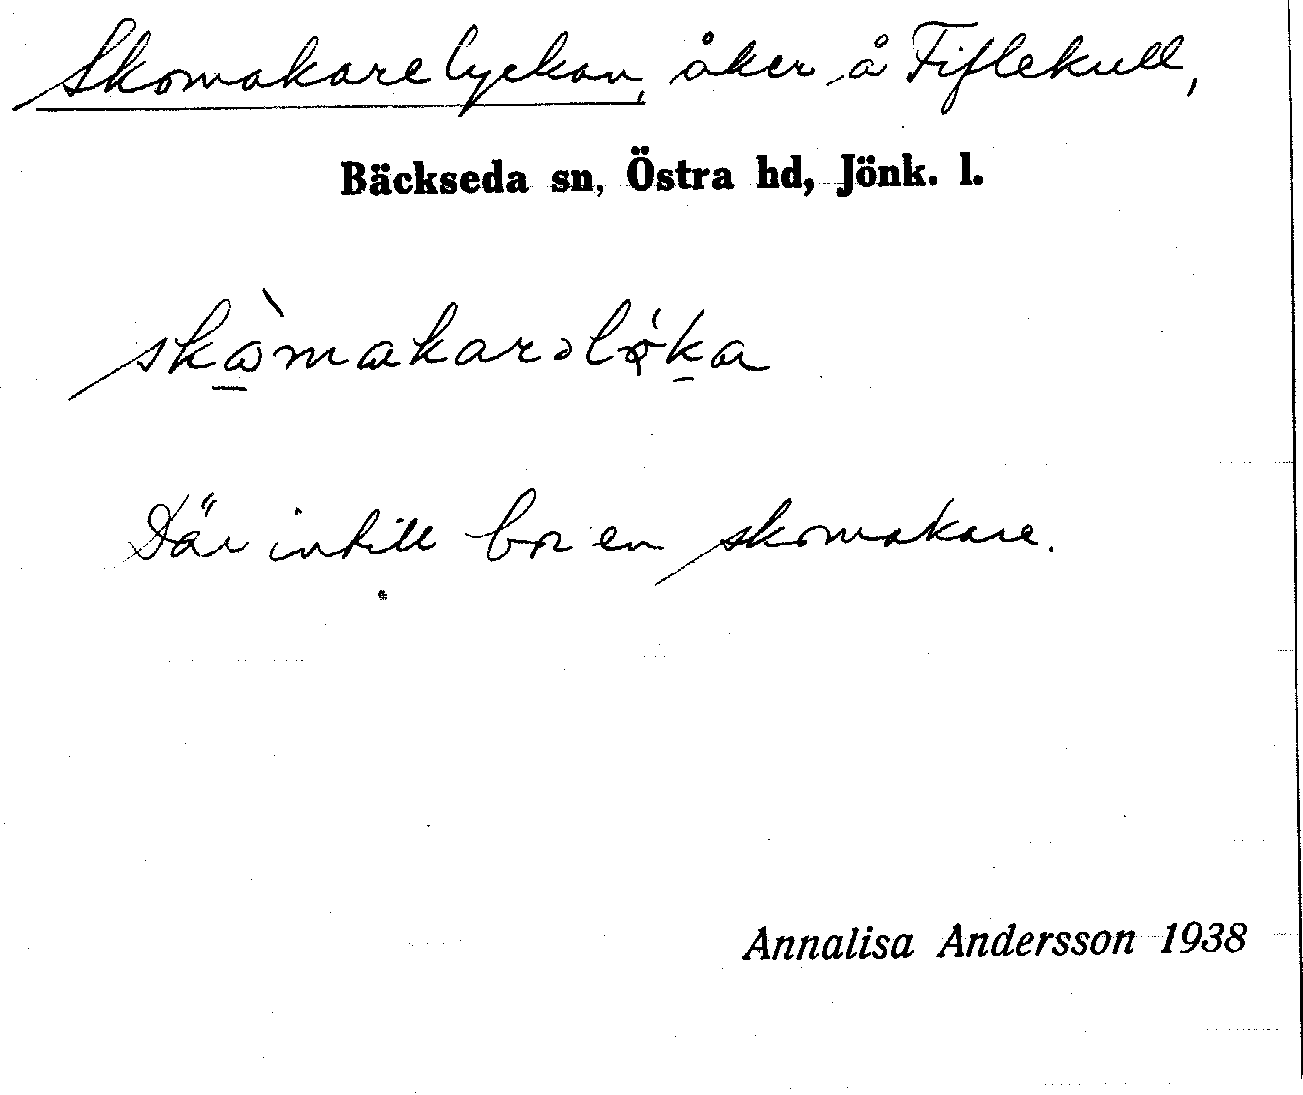 Skomakarelyckan, åker å Fiflekull,
Bäckseda sn, Östra hd, Jönk. l.
Där intill bor en skomakare.
Annalisa Andersson 1938